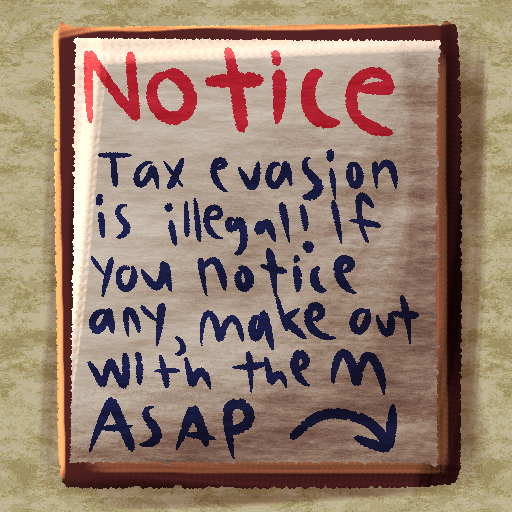 Notice
Tax evasion
is illegal! If
you notice
any, make out
with them
ASAP